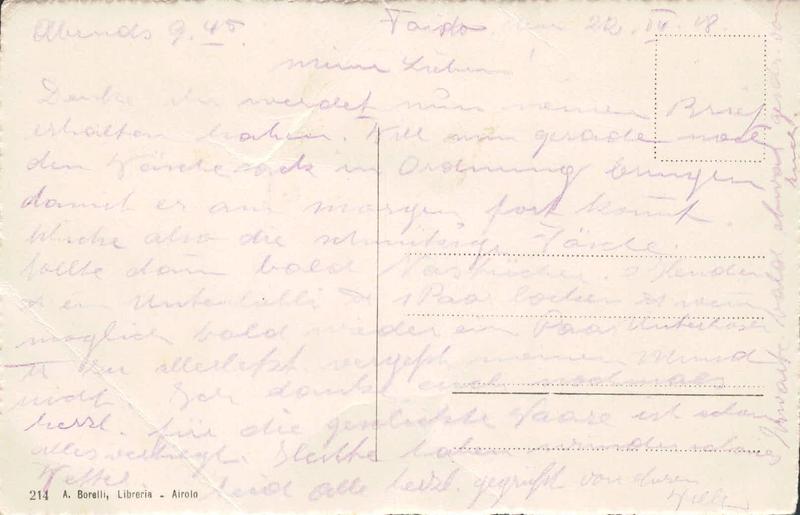 Abends 9.45. Faido, den 22. IV. 18.
Meine Lieben!
Denke ihr werdet nun meinen Brief
erhalten haben. Will nun gerade noch
den Wäschesack in Ordnung bringen
damit er am morgen fort kommt.
Schicke also die schmutzige Wäsche.
Sollte dann bald Nastücher, Hemden
& ein Unterleibli & 1 Paar Socken & wenn
möglich bald wieder ein Paar Unterhosen
u zu allerletzt vergesst meinen Mund
nicht. Ich danke euch nochmals
herzl. für die geschickte Waare ist schon
alles vertilgt. Heute haben wir wunderschönes
Wetter. Seid alle herzl. gegrüsst von eurem
Willy
Erwarte bald etwas von
euch.
214 A. Borelli, Libreria - Airolo